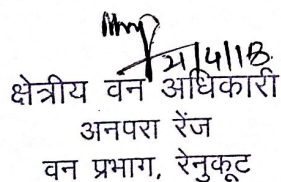 21/4/18
क्षेत्रीय वन अधिकारी
अनपरा रेंज
वन प्रभाग, रेनुकूट